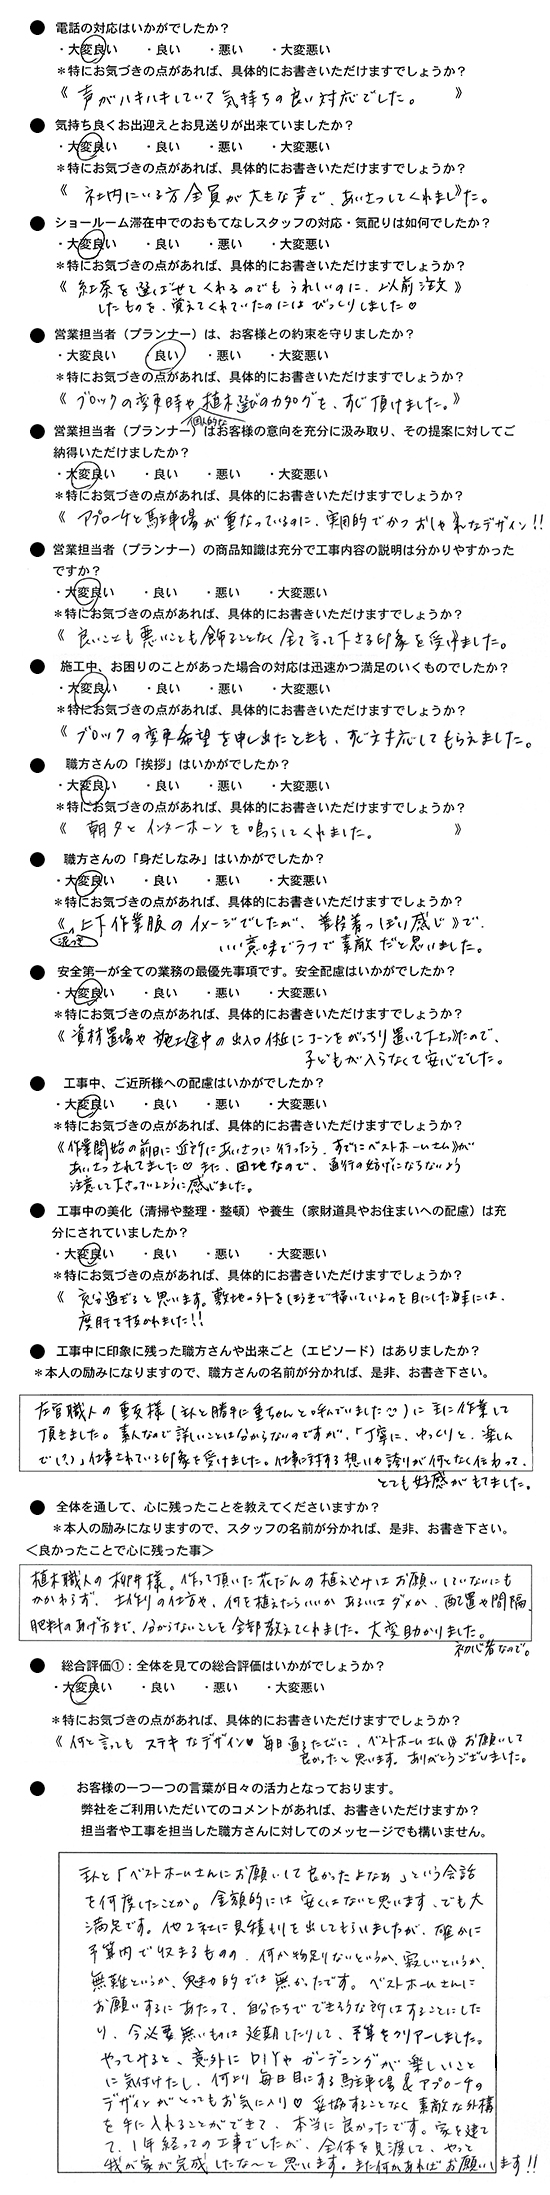 ● 電話の対応はいかがでしたか？
・大変良い ・良い ・悪い ・大変悪い
＊特にお気づきの点があれば、具体的にお書きいただけますでしょうか？
《 声がハキハキしていて気持ちの良い対応でした。 》
● 気持ち良くお出迎えとお見送りが出来ていましたか？
・大変良い ・良い ・悪い ・大変悪い
＊特にお気づきの点があれば、具体的にお書きいただけますでしょうか？
《 社内にいる方全員が大きな声で、あいさつしてくれました。 》
● ショールーム滞在中でのおもてなしスタッフの対応・気配りは如何でしたか？
・大変良い ・良い ・悪い ・大変悪い
＊特にお気づきの点があれば、具体的にお書きいただけますでしょうか？
《 紅茶を選ばせてくれるのでもうれしいのに、以前注文 》
したものを、覚えてくれていたのにはびっくりしました♡
● 営業担当者（プランナー）は、お客様との約束を守りましたか？
・大変良い ・良い ・悪い ・大変悪い
＊特にお気づきの点があれば、具体的にお書きいただけますでしょうか？
《 ブロックの変更時や植木選びのカタログも、すぐ頂けました。》
個人的な
● 営業担当者（プランナー）はお客様の意向を充分に汲み取り、その提案に対してご
納得いただけましたか？
・大変良い ・良い ・悪い ・大変悪い
＊特にお気づきの点があれば、具体的にお書きいただけますでしょうか？
《 アプローチと駐車場が重なっているのに、実用的でかつおしゃれなデザイン!! 》
● 営業担当者（プランナー）の商品知識は充分で工事内容の説明は分かりやすかった
ですか？
・大変良い ・良い ・悪い ・大変悪い
＊特にお気づきの点があれば、具体的にお書きいただけますでしょうか？
《 良いことも悪いことも飾ることなく全て言って下さる印象を受けました。 》
● 施工中、お困りのことがあった場合の対応は迅速かつ満足のいくものでしたか？
・大変良い ・良い ・悪い ・大変悪い
＊特にお気づきの点があれば、具体的にお書きいただけますでしょうか？
《 ブロックの変更希望を申し出たときも、すぐ対応してもらえました。
● 職方さんの「挨拶」はいかがでしたか？
・大変良い ・良い ・悪い ・大変悪い
＊特にお気づきの点があれば、具体的にお書きいただけますでしょうか？
《 朝夕とインターホーンを鳴らしてくれました。 》
● 職方さんの「身だしなみ」はいかがでしたか？
・大変良い ・良い ・悪い ・大変悪い
＊特にお気づきの点があれば、具体的にお書きいただけますでしょうか？
《 上下作業服のイメージでしたが、普段着っぽい感じ 》で、
いい意味でラフで素敵だと思いました。
● 安全第一が全ての業務の最優先事項です。安全配慮はいかがでしたか？
・大変良い ・良い ・悪い ・大変悪い
＊特にお気づきの点があれば、具体的にお書きいただけますでしょうか？
《 資材置場や施工途中の出入口付近にコーンをがっちり置いて下さったので、
子どもが入らなくて安心でした。
● 工事中、ご近所様への配慮はいかがでしたか？
・大変良い ・良い ・悪い ・大変悪い
＊特にお気づきの点があれば、具体的にお書きいただけますでしょうか？
《作業開始の前日に近所にあいさつに行ったら、すでにベストホームさん》が
あいさつされてました♡ また、団地なので、通行の妨げにならないよう
注意して下さっているように感じました。
● 工事中の美化（清掃や整理・整頓）や養生（家財道具やお住まいへの配慮）は充
分にされていましたか？
・大変良い ・良い ・悪い ・大変悪い
＊特にお気づきの点があれば、具体的にお書きいただけますでしょうか？
《 充分過ぎると思います。敷地の外をほうきで掃いているのを目にした時には、
度肝を抜かれました!!
● 工事中に印象に残った職方さんや出来ごと（エピソード）はありましたか？
＊本人の励みになりますので、職方さんの名前が分かれば、是非、お書き下さい。
左官職人の重友様（主人と勝手に重ちゃんと呼んでいました）に主に作業して
頂きました。素人なので詳しいことは分からないのですが、「丁寧に、ゆっくりと、楽しん
で(?)」仕事されている印象を受けました。仕事に対する想いや誇りが何となく伝わって、
とても好感がもてました。
● 全体を通して、心に残ったことを教えてくださいますか？
＊本人の励みになりますので、スタッフの名前が分かれば、是非、お書き下さい。
＜良かったことで心に残った事＞
植木職人の柳井様。作って頂いた花だんの植え込みはお願いしていないにも
かかわらず、土作りの仕方や、何を植えたらいいかあるいはダメか、配置や間隔、
肥料のあげ方まで、分からないことを全部教えてくれました。大変助かりました。
初心者なので。
● 総合評価①：全体を見ての総合評価はいかがでしょうか？
・大変良い ・良い ・悪い ・大変悪い
＊特にお気づきの点があれば、具体的にお書きいただけますでしょうか？
《 何と言ってもステキなデザイン♡ 毎日通るたびに、ベストホームさんにお願いして
良かったと思います。ありがとうございました。
● お客様の一つ一つの言葉が日々の活力となっております。
弊社をご利用いただいてのコメントがあれば、お書きいただけますか？
担当者や工事を担当した職方さんに対してのメッセージでも構いません。
主人と「ベストホームさんにお願いして良かったよなぁ」という会話
を何度したことか。金額的には安くはないと思います、でも大
満足です。他2社に見積もりを出してもらいましたが、確かに
予算内で収まるものの、何か物足りないというか、寂しいというか、
無難というか、魅力的では無かったです。ベストホームさんに
お願いするにあたって、自分たちでできそうな所はすることにした
り、今必要無いものは延期したりして、予算をクリアーしました。
やってみると、意外にDIYやガーデニングが楽しいこと
に気付けたし、何より毎日目にする駐車場＆アプローチの
デザインがとってもお気に入り♡ 妥協することなく素敵な外構
を手に入れることができて、本当に良かったです。家を建て
て、1年経っての工事でしたが、全体を見渡して、やっと
我が家が完成したな〜と思います。また何かあればお願いします!!